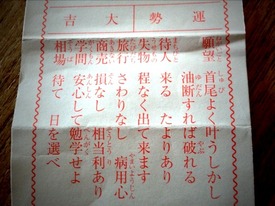 運勢大吉
願望 首尾よく叶うしかし
油断すれば破れる
待人 来る たよりあり
失物 程なく出て来ます
旅行 さわりなし 病用心
商売 損なし 相当利あり
学問 安心して勉学せよ
相場 待て 日を選べ